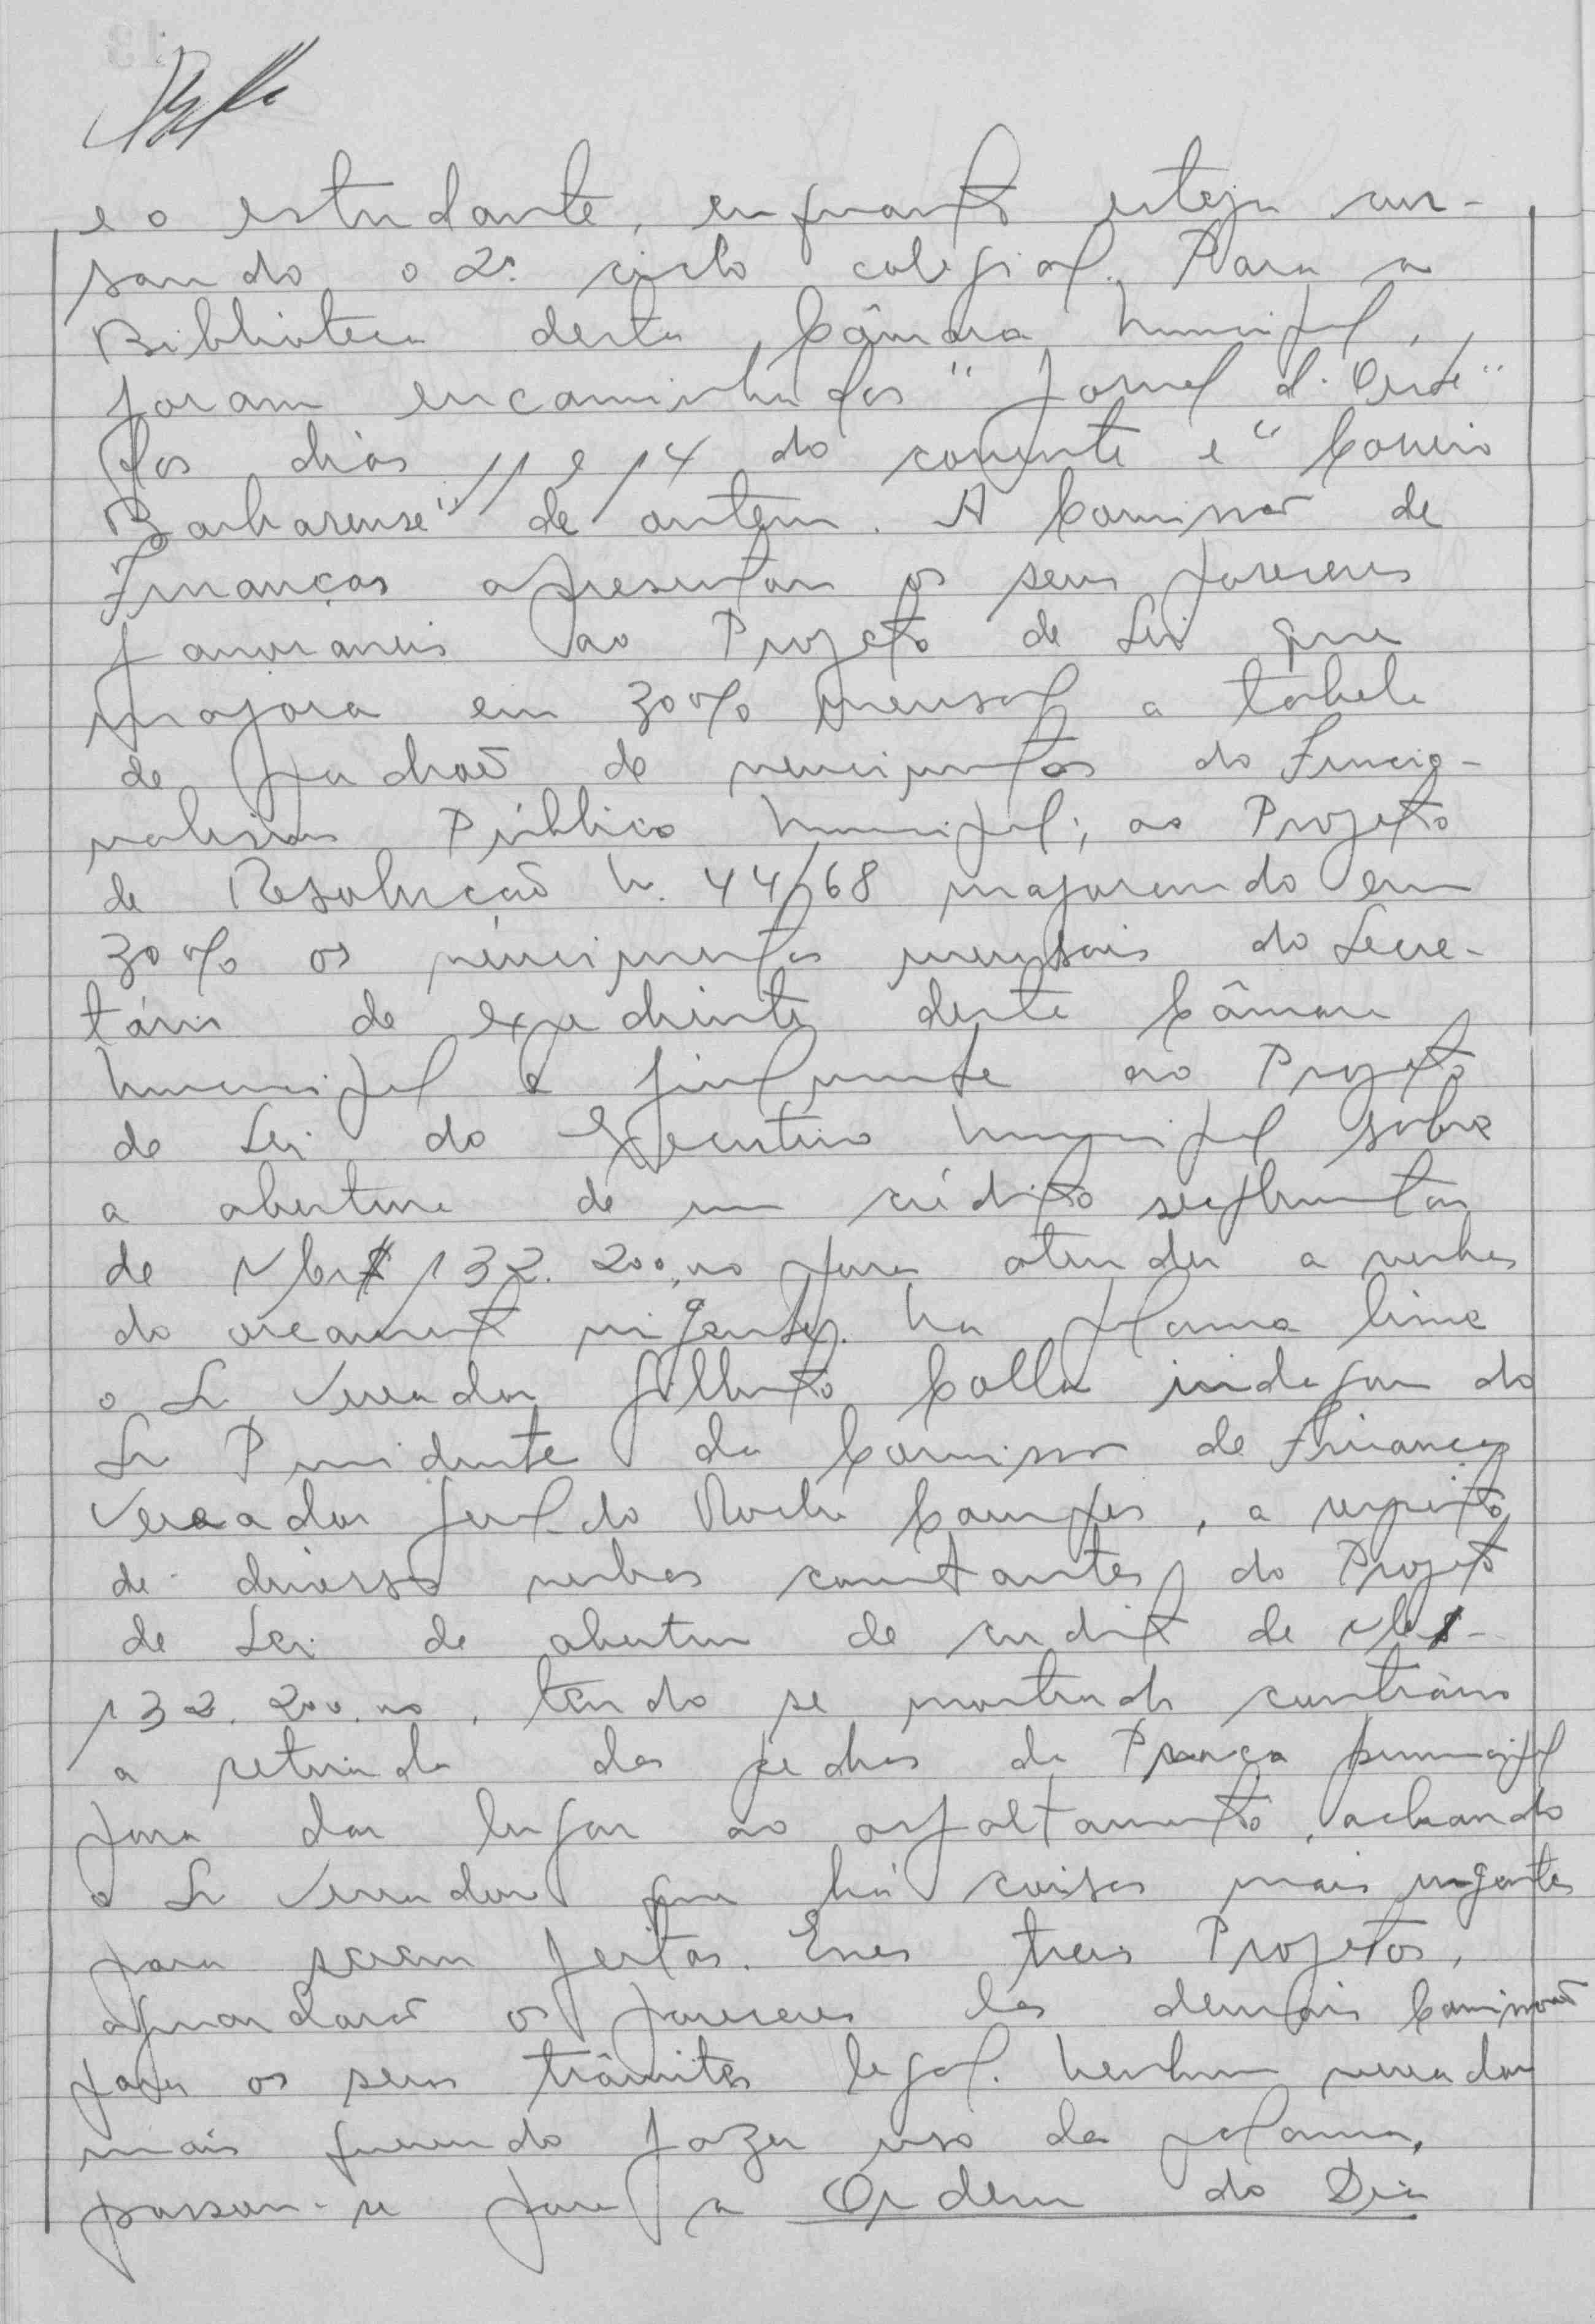 e o estudante, enquanto esteja cur-
sando o 2º. ciclo colegial. Para a
Biblioteca desta Câmara Municipal,
foram encaminhados "Jornal d'Oeste"
dos dias 11 e 14 do corrente e "Correio
Barbarense" de ontem. A Comissão de
Finanças apresentou os seus pareceres
favoraveis ao Projeto de Lei que
majora em 30% mensal a tabela
de padrão de vencimentos do Funcio-
nalismo Público Municipal; ao Projeto
de Resolução N. 44/68 majorando em
30% os vencimentos mensais do Secre-
tário de expediente desta Câmara
Municipal e finalmente ao Projeto
de Lei do Executivo Municipal sobre
a abertura de um crédito suplementar
de NCr$ 132.200,00 para atender a verbas
do orçamento vigente. Na palavra livre
o Sr Vereador Gilberto Colla indagou do
Sr Presidente da Comissão de Finanças
Vereador Geraldo Rocha Campos, a respeito
de diversas verbas constantes do Projeto
de Lei de abertura de credito de NCr$-
132.200,00, tendo se mostrado contrário
a retirada das pedras da Praça principal
para dar lugar ao asfaltamento, achando
o Sr Vereador que há coisas mais urgentes
para serem feitas. Esses treis Projetos,
aguardarão os pareceres das demais Comissões
para os seus trâmites legal. Nenhum vereador
mais querendo fazer uso da palavra,
passou-se para a Ordem do Dia